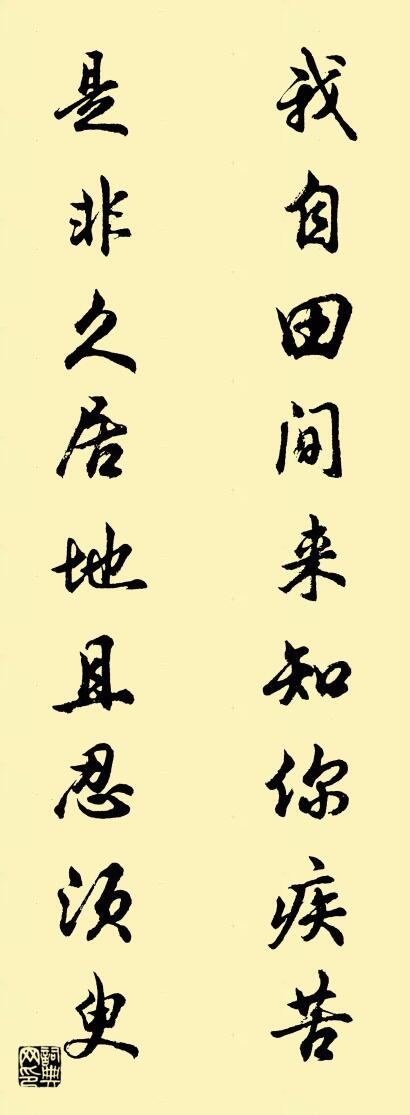 我自田间来知你疾苦
是非久居地且忍须臾
詞典网印